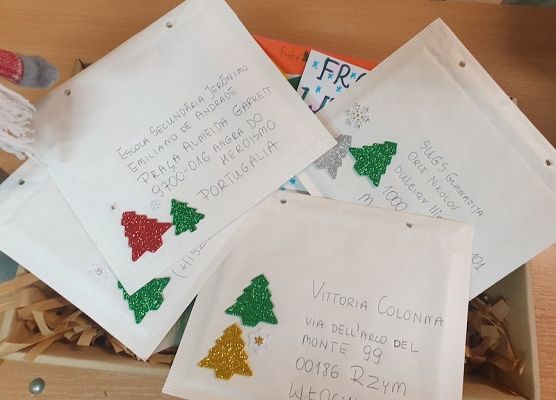 ESCOLA SECUNDÁRIA JERÓNIMO
EMILIANO DE ANDRADE
PRAÇA ALMEIDA GARRETT
9700-016 ANGRA DO
HEROÍSMO
PORTUGALIA
FRO
SUGS GIMNAZIJA
ORCE NIKOLOV
bulevar Ili
1000
M
101
VITTORIA COLONNA
VIA DELL'ARCO DEL
MONTE 99
00186 RZYM
WŁOCHY
(HISZ